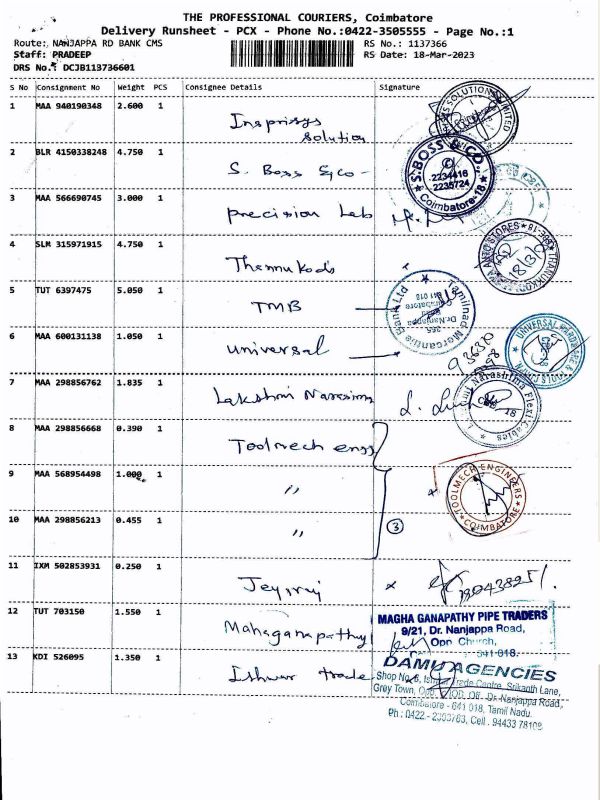 THE PROFESSIONAL COURIERS, Coimbatore
Delivery Runsheet - PCX - Phone No.:0422-3505555 - Page No.:1
Route: NANJAPPA RD BANK CMS
RS No.: 1137366
Staff: PRADEEP
RS Date: 18-Mar-2023
DRS No.: DCJB113736601
S No Consignment No Weight PCS Consignee Details Signature
1 MAA 940190348 2.600 1
Insprisys
Solution
2 BLR 4150338248 4.750 1
S. Boss &co -
S.BOSS & CO.
2234416
2235724
Coimbatore-18
3 MAA 566690745 3.000 1
precision Lab
4 SLM 315971915 4.750 1
Themukods
5 TUT 6397475 5.050 1
TMB
Tamilnad Mercantile Bank Ltd
365,
Dr.Nanjappa
Road
Coimbatore
641 018
6 MAA 600131138 1.050 1
universal
UNIVERSAL HARDWARE &
7 MAA 298856762 1.835 1
Lakshmi Narasima
8 MAA 298856668 0.390 1
Toolmech engs
9 MAA 568954498 1.000 1
"
TOOLMECH ENGINEERS
COIMBATORE
10 MAA 298856213 0.455 1
"
3
11 IXM 502853931 0.250 1
Jeyiraj
12 TUT 703150 1.550 1
Mahaganapathy
MAGHA GANAPATHY PIPE TRADERS
9/21, Dr. Nanjappa Road,
Opp. Church,
641-018.
13 KDI 526095 1.350 1
Ishwar trade
DAMU AGENCIES
Shop No. 6, Ishwar Trade Centre, Srikanth Lane,
Grey Town, Opp. Off. Dr. Nanjappa Road,
Coimbatore - 641 018, Tamil Nadu.